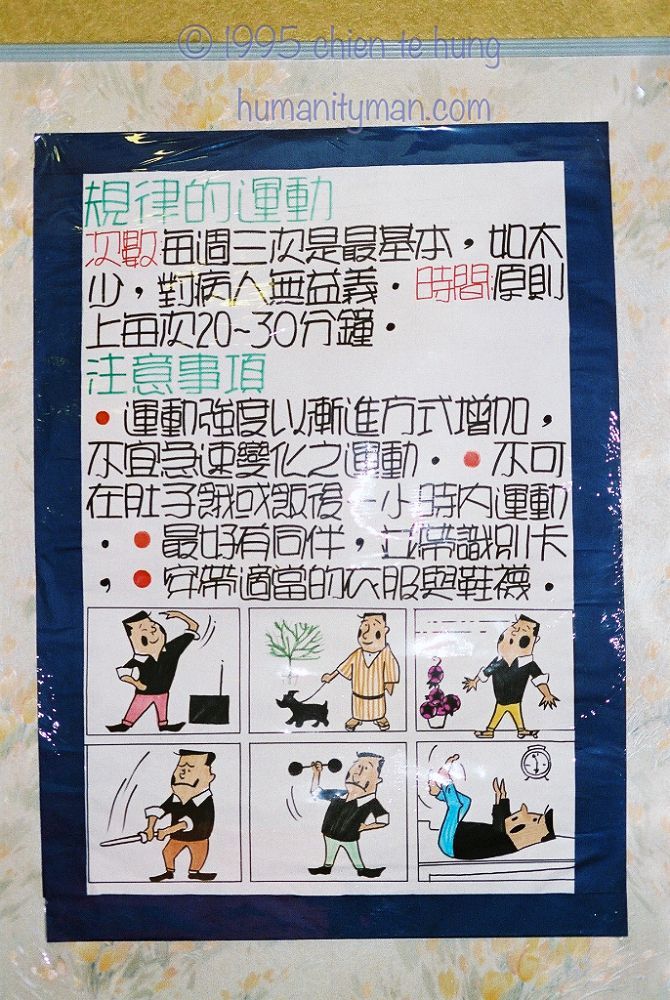 © 1995 chien te hung
humanityman.com
規律的運動
次數:每週三次是最基本,如太
少,對病人無益義.時間:原則
上每次20~30分鐘.
注意事項
運動強度以漸進方式增加,
不宜急速變化之運動.不可
在肚子餓或飯後一小時內運動
.最好有同伴,並帶識別卡
,穿帶適當的衣服與鞋襪.